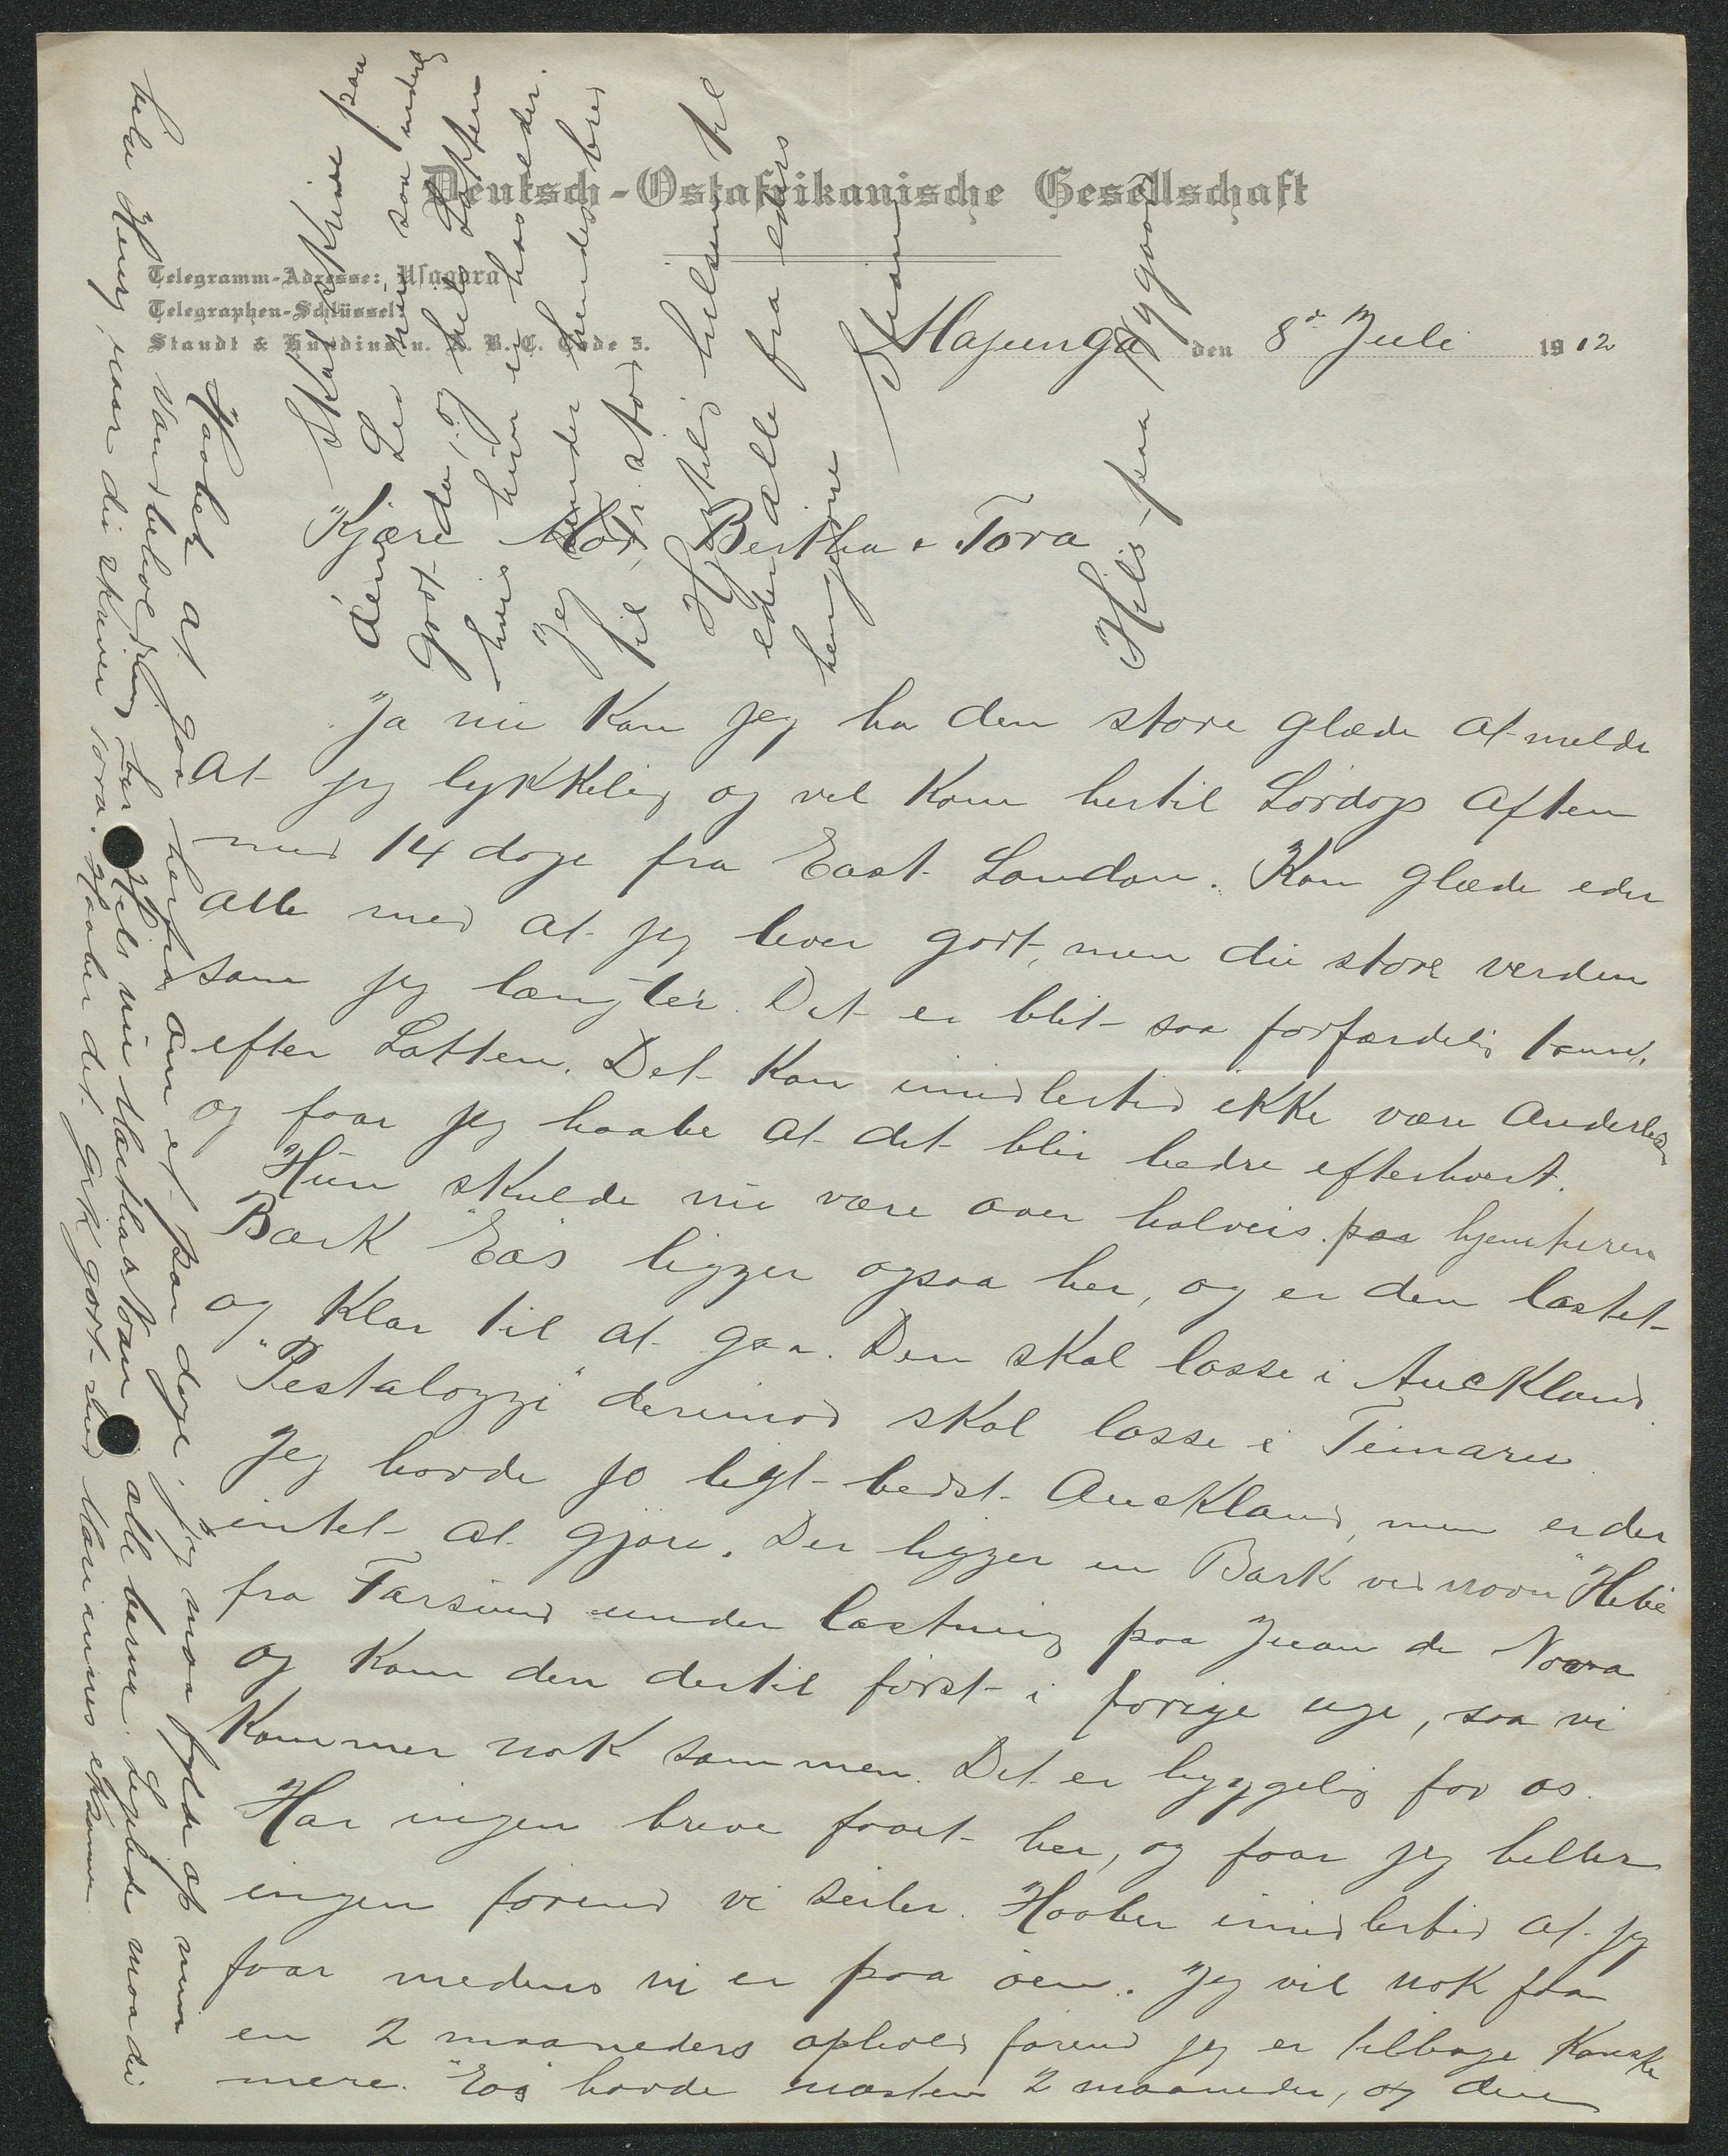 Deutsch-Ostafrikanische Gesellschaft
Telegramm-Adresse: Usagara
Telegraphen-Schlüssel:
Staudt & Hundius u. A. B. C. Code 5.
Majunga den 8de Juli 1912
Kjære Mor, Bertha & Tora
Ja nu Kan jeg ha den store glæde at melde
at jeg lykkelig og vel Kom hertil Lørdags Aften
med 14 dage fra East London. Kan glæde eder
alle med at jeg lever godt, men du store verden
som jeg længter. Det er blit saa forfærdelig tomt,
efter Lotten. Det Kan imidlertid ikke være anderledes
og faar jeg haabe at det blir bedre efterhvert.
Hun skulde nu være over halveis paa hjemturen
Bark "Eos" ligger ogsaa her, og er den lastet
og Klar til at gaa. Den skal losse i Auckland
"Pestalozzi" derimod skal losse i Timaru
Jeg havde jo ligt bedst Auckland, men er der
intet at gjøre. Der ligger en Bark ved navn "Hebe"
fra Farsund under lastning paa Juan de Nova
og Kom den dertil først i forrige uge, saa vi
Kommer nok sammen. Det er hyggelig for os.
Har ingen breve faaet her, og faar jeg heller
ingen førend vi seiler. Haaber imidlertid at jeg
faar medens vi er paa øen. Jeg vil nok faa
en 2 maaneders ophold førend jeg er tilbage Kanske
mere. "Eos" havde næsten 2 maaneder, og den
Haaber at gaa herfra om et par dage, jeg maa fylde op min
Vandbeholdning her. Hils nu Martha & Tom alle barna. Ligeledes maa du
hilse Henry, naar du skriver Tora. Haaber det gik godt med Mariannes eksamen
Skal skrive paa
øen.
godt da, og hils Lotten
hvis hun er hos eder.
Jeg sender hendes brev
til
Hjertelig hilsen til
eder alle fra eders
hengivne
Hils paa Nygaard